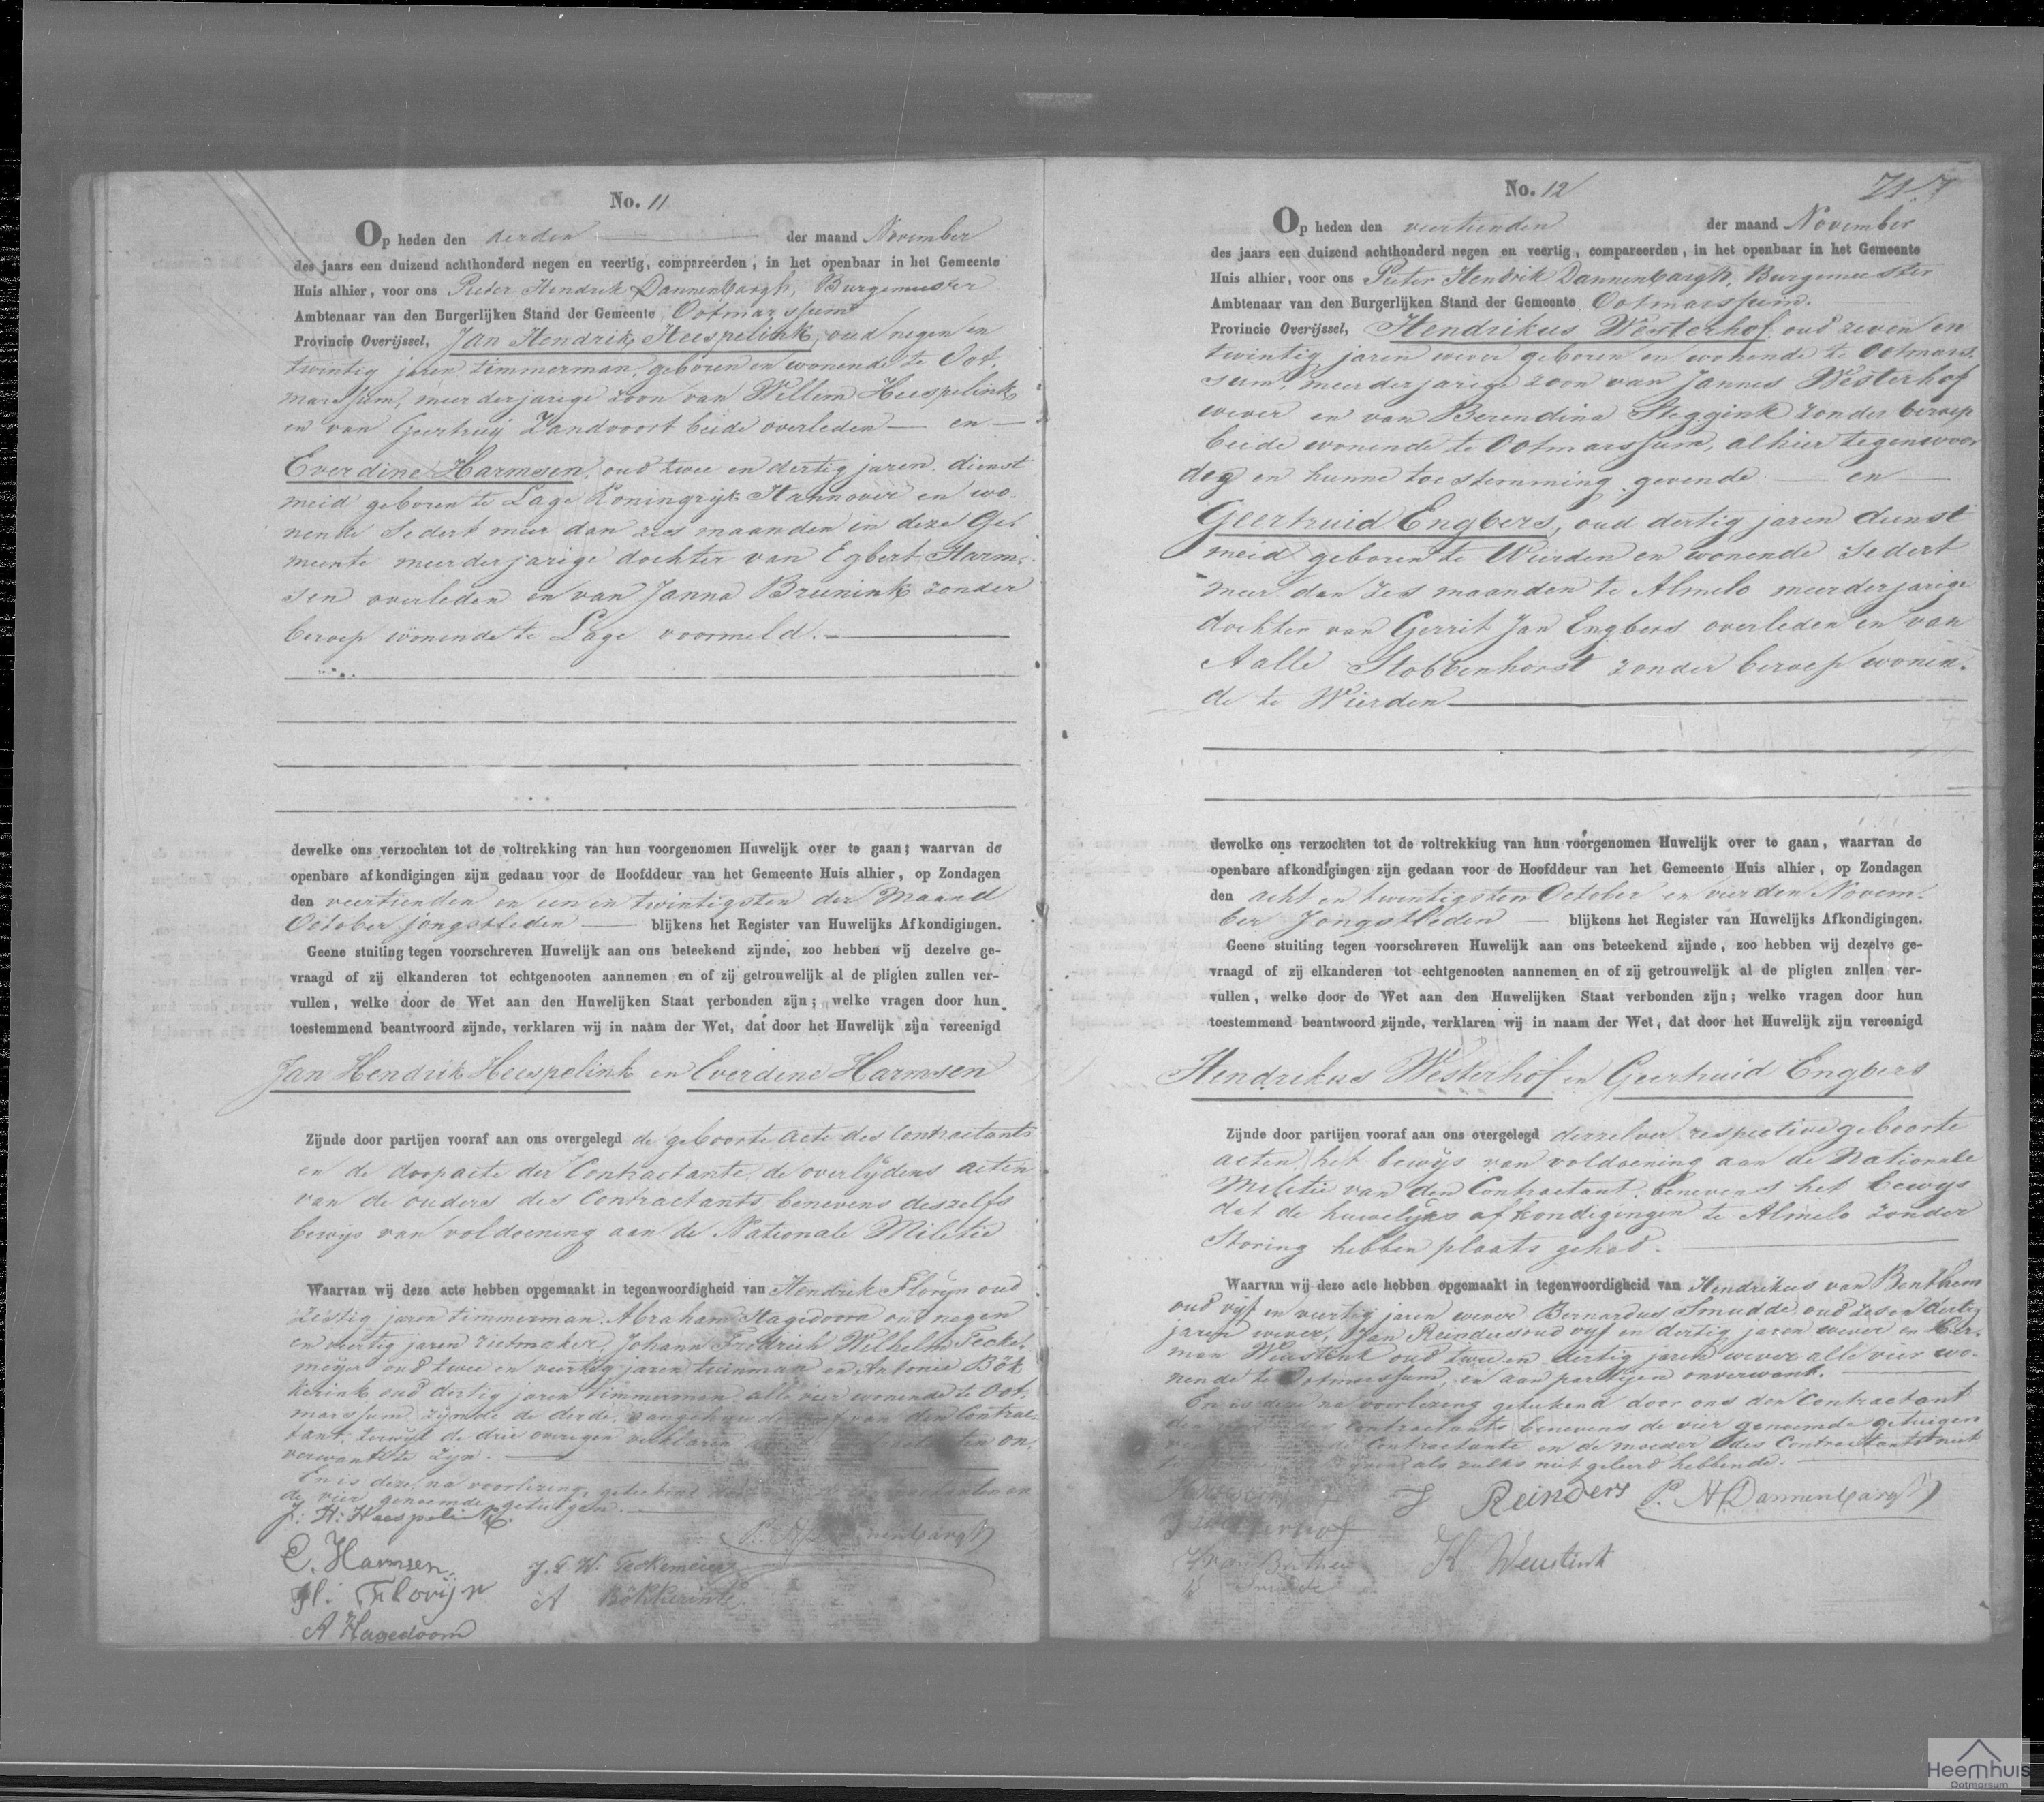 No. 11
Op heden den derden der maand November
des jaars een duizend achthonderd negen en veertig, compareerden, in het openbaar in het Gemeente
Huis alhier, voor ons Pieter Hendrik Dannenbargh, Burgemeester
Ambtenaar van den Burgerlijken Stand der Gemeente Ootmarssum
Provincie Overijssel, Jan Hendrik Heespelink, oud negen en
twintig jaren timmerman, geboren en wonende te Oot,
marssum, meerderjarige zoon van Willem Heespelink
en van Geertruij Zandvoort beide overleden — en —
Everdine Harmsen, oud twee en dertig jaren dienst
meid geboren te Lage Koningrijk Hannover en wo-
nende sedert meer dan zes maanden in deze Ge-
meente meerderjarige dochter van Egbert Harm-
sen overleden en van Janna Brunink zonder
beroep wonende te Lage voormeld. —
dewelke ons verzochten tot de voltrekking van hun voorgenomen Huwelijk over te gaan; waarvan de
openbare afkondigingen zijn gedaan voor de Hoofddeur van het Gemeente Huis alhier, op Zondagen
den veertienden en een en twintigsten der Maand
October jongstleden — blijkens het Register van Huwelijks Afkondigingen.
Geene stuiting tegen voorschreven Huwelijk aan ons beteekend zijnde, zoo hebben wij dezelve ge-
vraagd of zij elkanderen tot echtgenooten aannemen en of zij getrouwelijk al de pligten zullen ver-
vullen, welke door de Wet aan den Huwelijken Staat verbonden zijn; welke vragen door hun
toestemmend beantwoord zijnde, verklaren wij in naam der Wet, dat door het Huwelijk zijn vereenigd
Jan Hendrik Heespelink en Everdine Harmsen
Zijnde door partijen vooraf aan ons overgelegd de geboorte acte des Contractants
en de doopacte der Contractante, de overlijdens acten
van de ouders des Contractants benevens deszelfs
bewijs van voldoening aan de Nationale Militie
Waarvan wij deze acte hebben opgemaakt in tegenwoordigheid van Hendrik Florijn oud
zestig jaren timmerman Abraham Hagedoorn oud negen
en veertig jaren rietmaker, Johann Frederich Wilhelm Tecke-
meijer oud twee en veertig jaren tuinman en Antonie Bök
kerink oud dertig jaren timmerman alle vier wonende te Oot,
marssum zijnde de derde van den Contrac-
tant, terwijl de drie overigen verklaren on,
verwant te zijn. —
En is deze na voorlezing, geteekend en
de vier genoemde getuigen. —
J: H: Heespelink
P. H. Dannenbargh
C. Harmsen
J. F. W. Teckemeier
H: Florijn
A Bökkerink
A Hagedoorn
No. 12
Op heden den veertienden der maand November
des jaars een duizend achthonderd negen en veertig, compareerden, in het openbaar in het Gemeente
Huis alhier, voor ons Pieter Hendrik Dannenbargh, Burgemeester
Ambtenaar van den Burgerlijken Stand der Gemeente Ootmarssum.
Provincie Overijssel, Hendrikus Westerhof oud zeven en
twintig jaren wever geboren en wonende te Ootmars-
sum, meerderjarige zoon van Jannes Westerhof
wever en van Berendina Steggink zonder beroep
beide wonende te Ootmarssum, alhier tegenwoor
dig en hunne toestemming gevende — en —
Geertruid Engbers, oud dertig jaren dienst
meid geboren te Wierden en wonende sedert
meer dan zes maanden te Almelo meerderjarige
dochter van Gerrit Jan Engbers overleden en van
Aalle Slobbenhorst zonder beroep wonen-
de te Wierden —
dewelke ons verzochten tot de voltrekking van hun voorgenomen Huwelijk over te gaan, waarvan de
openbare afkondigingen zijn gedaan voor de Hoofddeur van het Gemeente Huis alhier, op Zondagen
den acht en twentigsten October en vierden Novem-
ber Jongstleden — blijkens het Register van Huwelijks Afkondigingen.
Geene stuiting tegen voorschreven Huwelijk aan ons beteekend zijnde, zoo hebben wij dezelve ge-
vraagd of zij elkanderen tot echtgenooten aannemen en of zij getrouwelijk al de pligten znllen ver-
vullen, welke door de Wet aan den Huwelijken Staat verbonden zijn; welke vragen door hun
toestemmend beantwoord zijnde, verklaren wij in naam der Wet, dat door het Huwelijk zijn vereenigd
Hendrikus Westerhof en Geertruid Engbers
Zijnde door partijen vooraf aan ons overgelegd derzelver respective geboorte
acten, het bewijs van voldoening aan de Nationale
Militie van den Contractant, benevens het bewijs
dat de huwelijks afkondigingen te Almelo zonder
Storing hebben plaats gehad. —
Waarvan wij deze acte hebben opgemaakt in tegenwoordigheid van Hendrikus van Benthem
oud vijf en veertig jaren wever Bernardus Smudde oud zes en dertig
jaren wever, Jan Reinders oud vijf en dertig jaren wever en Her-
man Weustink oud twee en dertig jaren wever alle vier wo-
nende te Ootmarssum, en aan partijen onverwant. —
En is deze na voorlezing geteekend door ons den Contractant
den des Contractants benevens de vier genoemde getuigen
de Contractante en de moeder des Contractants niet
als zulks niet geleerd hebbende. —
J Reinders P. H. Dannenbargh
H van Benthem
H Weustink
Heemhuis
Ootmarsum